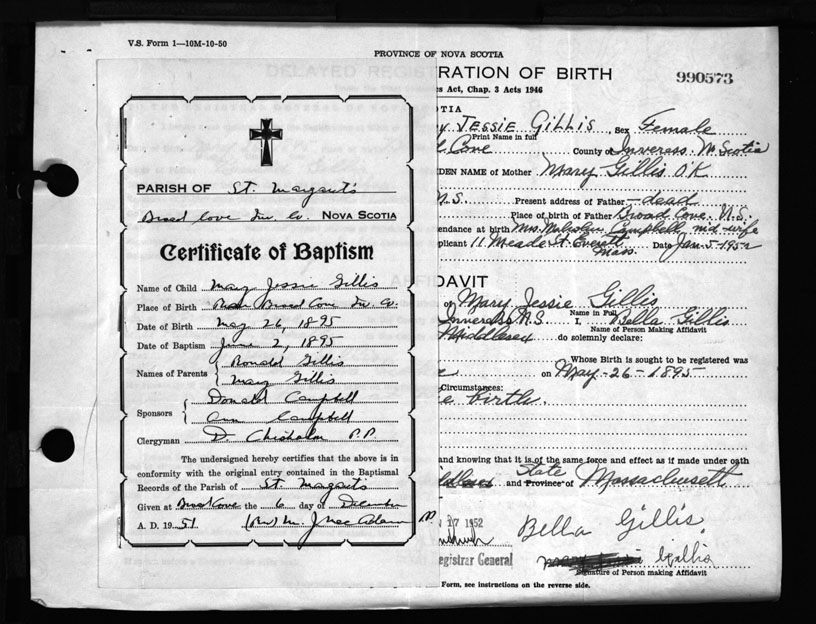 V.S. Form 1—10M-10-50
PROVINCE OF NOVA SCOTIA
DELAYED REGISTRATION OF BIRTH
990573
Act, Chap. 3 Acts 1946
PARISH OF St. Margarets
Broad Cove Inv. Co. NOVA SCOTIA
Certificate of Baptism
Name of Child Mary Jessie Gillis
Place of Birth Broad Cove Inv. Co.
Date of Birth May 26, 1895
Date of Baptism June 2, 1895
Names of Parents Ronald Gillis
Mary Gillis
Sponsors Donald Campbell
Ann Campbell
Clergyman D Chisholm P.P
The undersigned hereby certifies that the above is in
conformity with the original entry contained in the Baptismal
Records of the Parish of St. Margarets
Given at Broad Cove the 6 day of December
A. D. 1951 (Rev) M. J. MacAdam PP
JESSIE GILLIS, Sex Female
Print Name in full
Cove County of Inverness N. Scotia
DEN NAME of Mother Mary Gillis O.K
N.S. Present address of Father dead
Place of birth of Father Broad Cove. N.S.
endance at birth Mrs. Malcolm Campbell mid-wife
plicant 11 Meade St. Everett Mass. Date Jan-5-1952
DAVIT
of Mary Jessie Gillis
Name in Full
Inverness N.S. I, Bella Gillis
Name of Person Making Affidavit
Middlesex do solemnly declare:
Whose Birth is sought to be registered was
on May-26-1895
Circumstances:
e birth.
and knowing that it is of the same force and effect as if made under oath
and Province of State Massachusetts
17 1952
Bella Gillis
egistrar General
Gillis
Signature of Person making Affidavit
Form, see instructions on the reverse side.